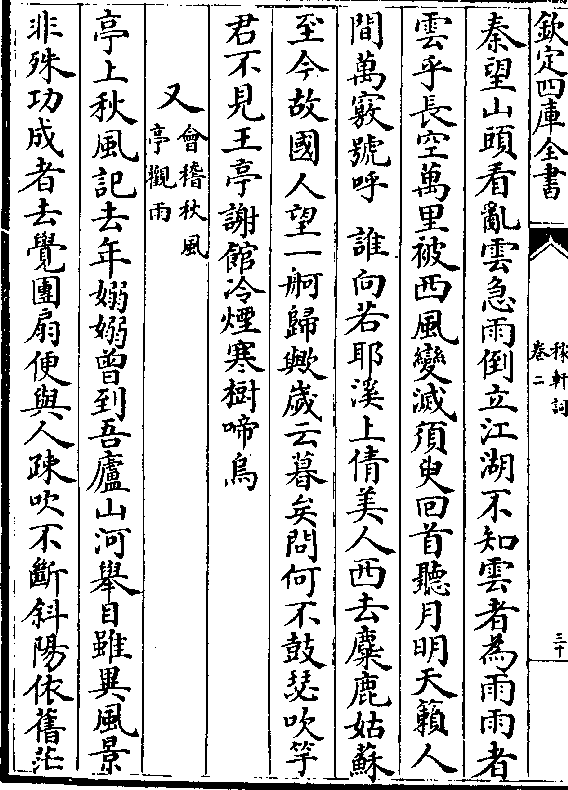 欽定四庫全書
稼軒詞
卷二
三十
秦望山頭看亂雲急雨倒立江湖不知雲者為雨雨者
雲乎長空萬里被西風變滅須臾回首聽月明天籟人
間萬竅號呼 誰向若耶溪上倩美人西去麋鹿姑蘇
至今故國人望一舸歸歟歲云暮矣問何不鼓瑟吹竽
君不見王亭謝館冷煙寒樹啼烏
又
會稽秋風
亭觀雨
亭上秋風記去年嫋嫋曾到吾廬山河舉目雖異風景
非殊功成者去覺團扇便與人疎吹不斷斜陽依舊茫